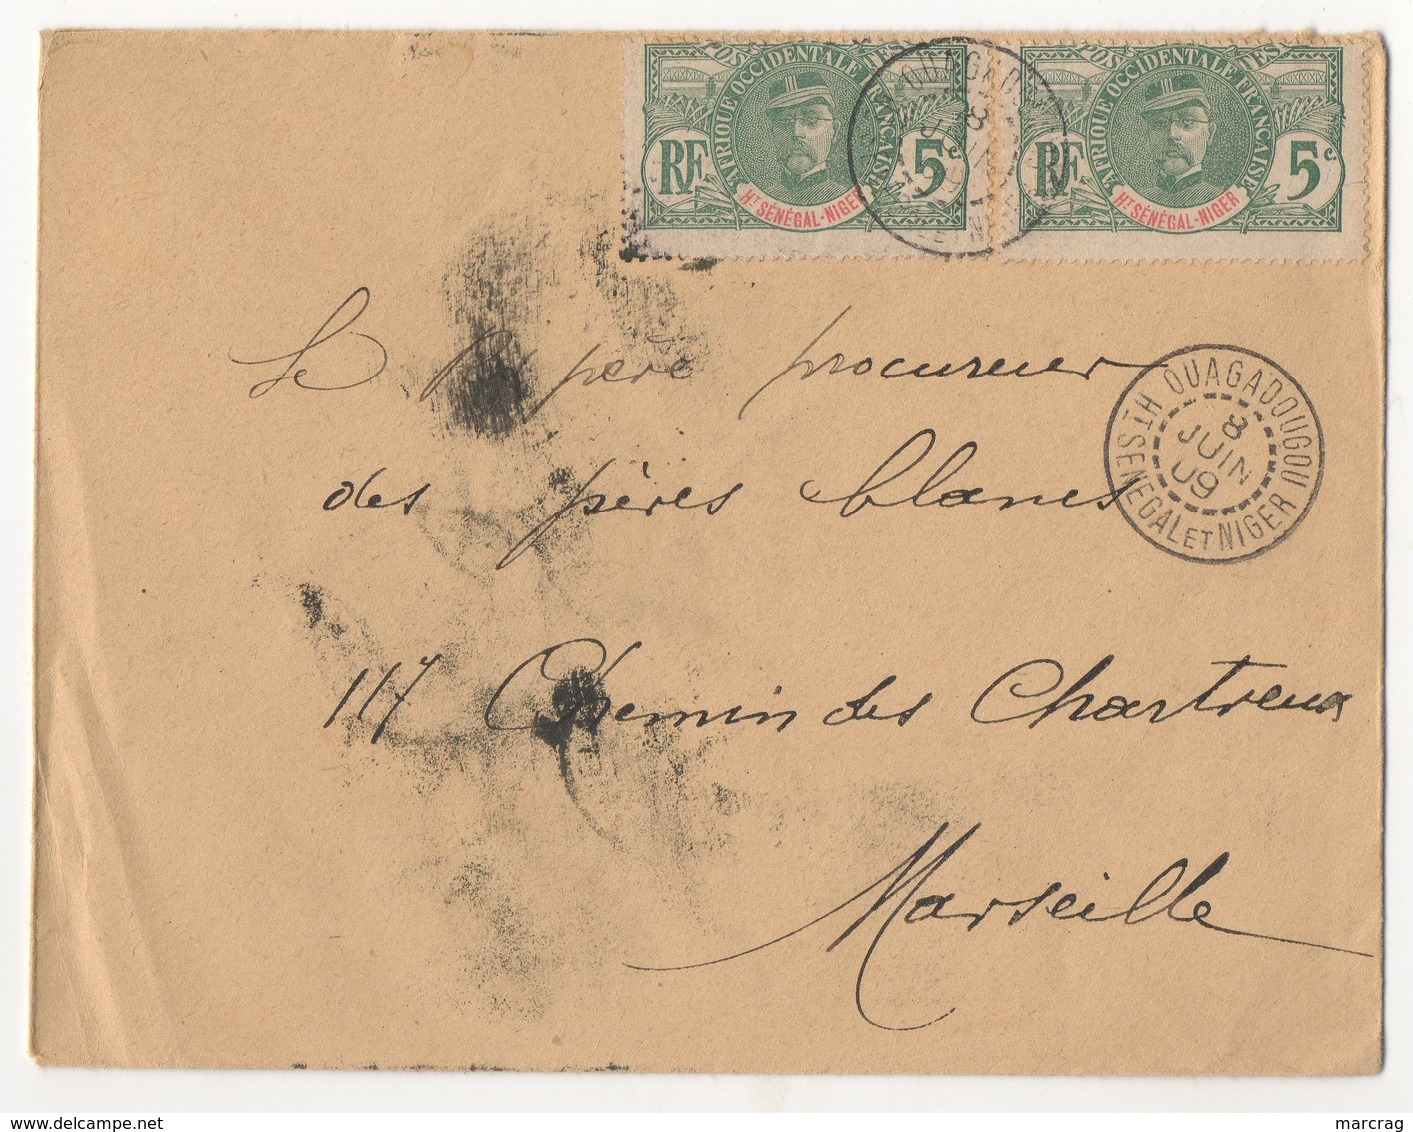 POSTES
AFRIQUE OCCIDENTALE FRANÇAISE
RF
5c
HT SÉNÉGAL-NIGER
POSTES
AFRIQUE OCCIDENTALE FRANÇAISE
RF
5c
HT SÉNÉGAL-NIGER
OUAGADOUGOU
8
JUIN
Le père procureur
OUAGADOUGOU
8
JUIN
09
HT SENEGAL ET NIGER
des pères blancs
117 Chemin des Chartreux
Marseille
www.delcampe.net
marcrag